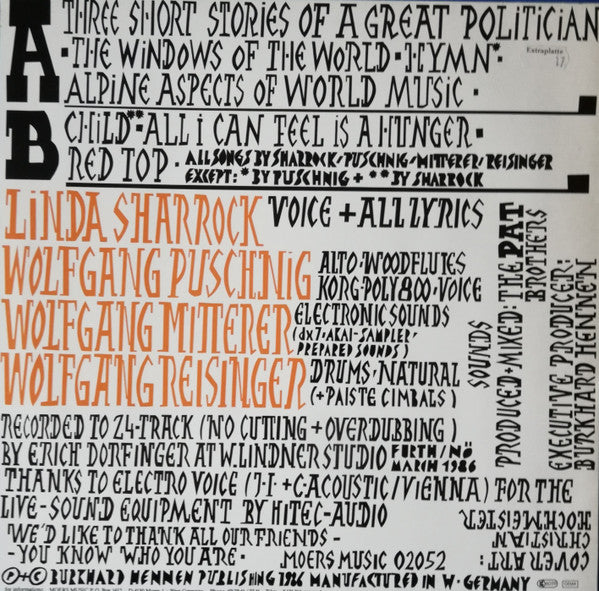 A
THREE SHORT STORIES OF A GREAT POLITICIAN
·THE WINDOWS OF THE WORLD·HYMN*·
Extraplatte
17
ALPINE ASPECTS OF WORLD MUSIC ·
B
CHILD**·ALL I CAN FEEL IS A HUNGER·
RED TOP · ALL SONGS BY SHARROCK/PUSCHNIG/MITTERER/REISINGER
EXCEPT: * BY PUSCHNIG + ** BY SHARROCK
LINDA SHARROCK VOICE + ALL LYRICS
WOLFGANG PUSCHNIG ALTO·WOODFLUTES
KORG-POLY 800·VOICE
WOLFGANG MITTERER ELECTRONIC SOUNDS
(dx7·AKAI-SAMPLER·
PREPARED SOUNDS)
WOLFGANG REISINGER DRUMS·NATURAL
(+PAISTE CIMBALS)
SOUNDS
PRODUCED+MIXED: THE PAT
BROTHERS
EXECUTIVE PRODUCER:
BURKHARD HENNEN
RECORDED TO 24-TRACK (NO CUTTING + OVERDUBBING)
BY ERICH DORFINGER AT W.LINDNER STUDIO FURTH/NÖ
MARCH 1986
THANKS TO ELECTRO VOICE (J·J·+CACOUSTIC/VIENNA) FOR THE
LIVE-SOUND EQUIPMENT BY HITEC-AUDIO
WE'D LIKE TO THANK ALL OUR FRIENDS -
-YOU KNOW WHO YOU ARE· MOERS MUSIC 02052
COVER ART:
CHRISTIAN
HOCHMEISTER
P+C BURKHARD HENNEN PUBLISHING 1986 MANUFACTURED IN W·GERMANY